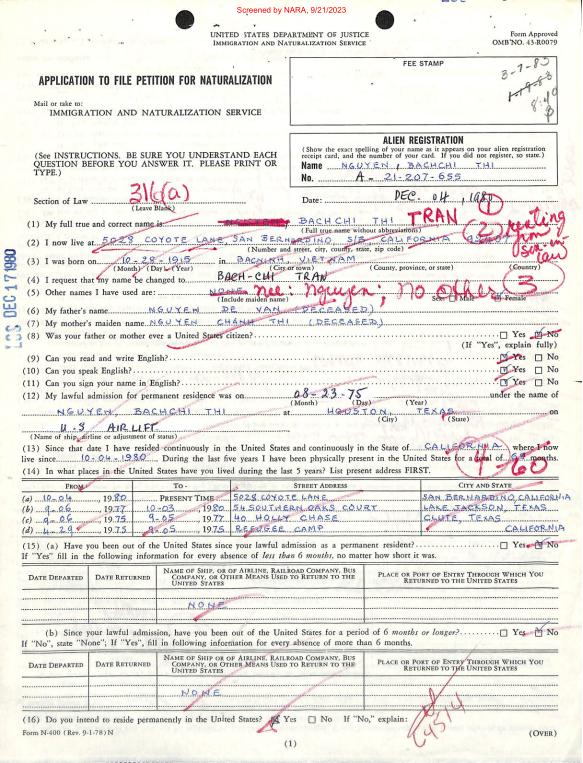 Screened by NARA, 9/21/2023
UNITED STATES DEPARTMENT OF JUSTICE
IMMIGRATION AND NATURALIZATION SERVICE
Form Approved
OMB NO. 43-R0079
FEE STAMP
3-7-83
1-19-83
8:40
APPLICATION TO FILE PETITION FOR NATURALIZATION
Mail or take to:
IMMIGRATION AND NATURALIZATION SERVICE
(See INSTRUCTIONS. BE SURE YOU UNDERSTAND EACH QUESTION BEFORE YOU ANSWER IT. PLEASE PRINT OR TYPE.)
ALIEN REGISTRATION
(Show the exact spelling of your name as it appears on your alien registration receipt card, and the number of your card. If you did not register, so state.)
Name NGUYEN, BACHCHI THI
No. A- 21-207-655
Section of Law 316(a)
(Leave Blank)
Date: DEC. 04, 1980 1
(1) My full true and correct name is BACHCHI THI TRAN
(Full true name without abbreviations)
(2) I now live at 5028 COYOTE LANE, SAN BERNARDINO, S/B, CALIFORNIA
(Number and street, city, county, state, zip code)
2 renting from son-in-law
(3) I was born on 10-28-1915 in BACNINH, VIETNAM
(Month) (Day) (Year) (City or town) (County, province, or state) (Country)
(4) I request that my name be changed to BACH-CHI TRAN
(5) Other names I have used are: NONE nee: Nguyen; No other 3
(Include maiden name) Sex: Male Female
LOS DEC 17 1980
(6) My father's name NGUYEN DE VAN (DECEASED)
(7) My mother's maiden name NGUYEN CHANH THI (DECEASED)
(8) Was your father or mother ever a United States citizen? Yes No
(If "Yes", explain fully)
(9) Can you read and write English? Yes No
(10) Can you speak English? Yes No
(11) Can you sign your name in English? Yes No
(12) My lawful admission for permanent residence was on 08-23-75 under the name of
(Month) (Day) (Year)
NGUYEN, BACHCHI THI at HOUSTON, TEXAS on
(City) (State)
U.S AIRLIFT
(Name of ship, airline or adjustment of status)
(13) Since that date I have resided continuously in the United States and continuously in the State of CALIFORNIA where I now
live since 10-04-1980. During the last five years I have been physically present in the United States for a total of 60 months.
4-60
(14) In what places in the United States have you lived during the last 5 years? List present address FIRST.
FROM— TO— STREET ADDRESS CITY AND STATE
(a) 10-04, 1980 PRESENT TIME 5028 COYOTE LANE SAN BERNARDINO, CALIFORNIA
(b) 9-06, 1977 10-03, 1980 54 SOUTHERN OAKS COURT LAKE JACKSON, TEXAS
(c) 9-06, 1975 9-05, 1977 40 HOLLY CHASE CLUTE, TEXAS
(d) 4-29, 1975 9-05, 1975 REFUGEE CAMP CALIFORNIA
(15) (a) Have you been out of the United States since your lawful admission as a permanent resident? Yes No
If "Yes" fill in the following information for every absence of less than 6 months, no matter how short it was.
DATE DEPARTED DATE RETURNED NAME OF SHIP, OR OF AIRLINE, RAILROAD COMPANY, BUS COMPANY, OR OTHER MEANS USED TO RETURN TO THE UNITED STATES PLACE OR PORT OF ENTRY THROUGH WHICH YOU RETURNED TO THE UNITED STATES
NONE
(b) Since your lawful admission, have you been out of the United States for a period of 6 months or longer? Yes No
If "No", state "None"; If "Yes", fill in following information for every absence of more than 6 months.
DATE DEPARTED DATE RETURNED NAME OF SHIP OR OF AIRLINE, RAILROAD COMPANY, BUS COMPANY, OR OTHER MEANS USED TO RETURN TO THE UNITED STATES PLACE OR PORT OF ENTRY THROUGH WHICH YOU RETURNED TO THE UNITED STATES
NONE
(16) Do you intend to reside permanently in the United States? Yes No If "No," explain:
64514
Form N-400 (Rev. 9-1-78) N
(1)
(OVER)